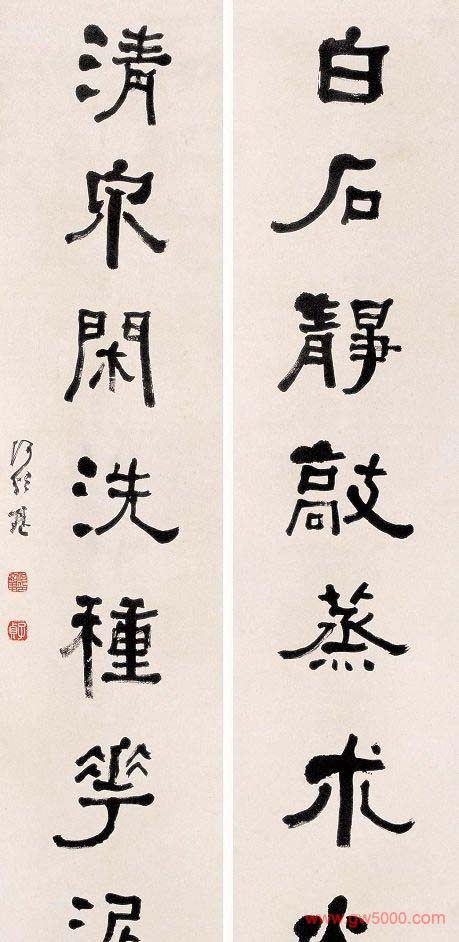 白石靜敲蒸朮火
清泉閑洗種花泥
何紹基
www.gw5000.com